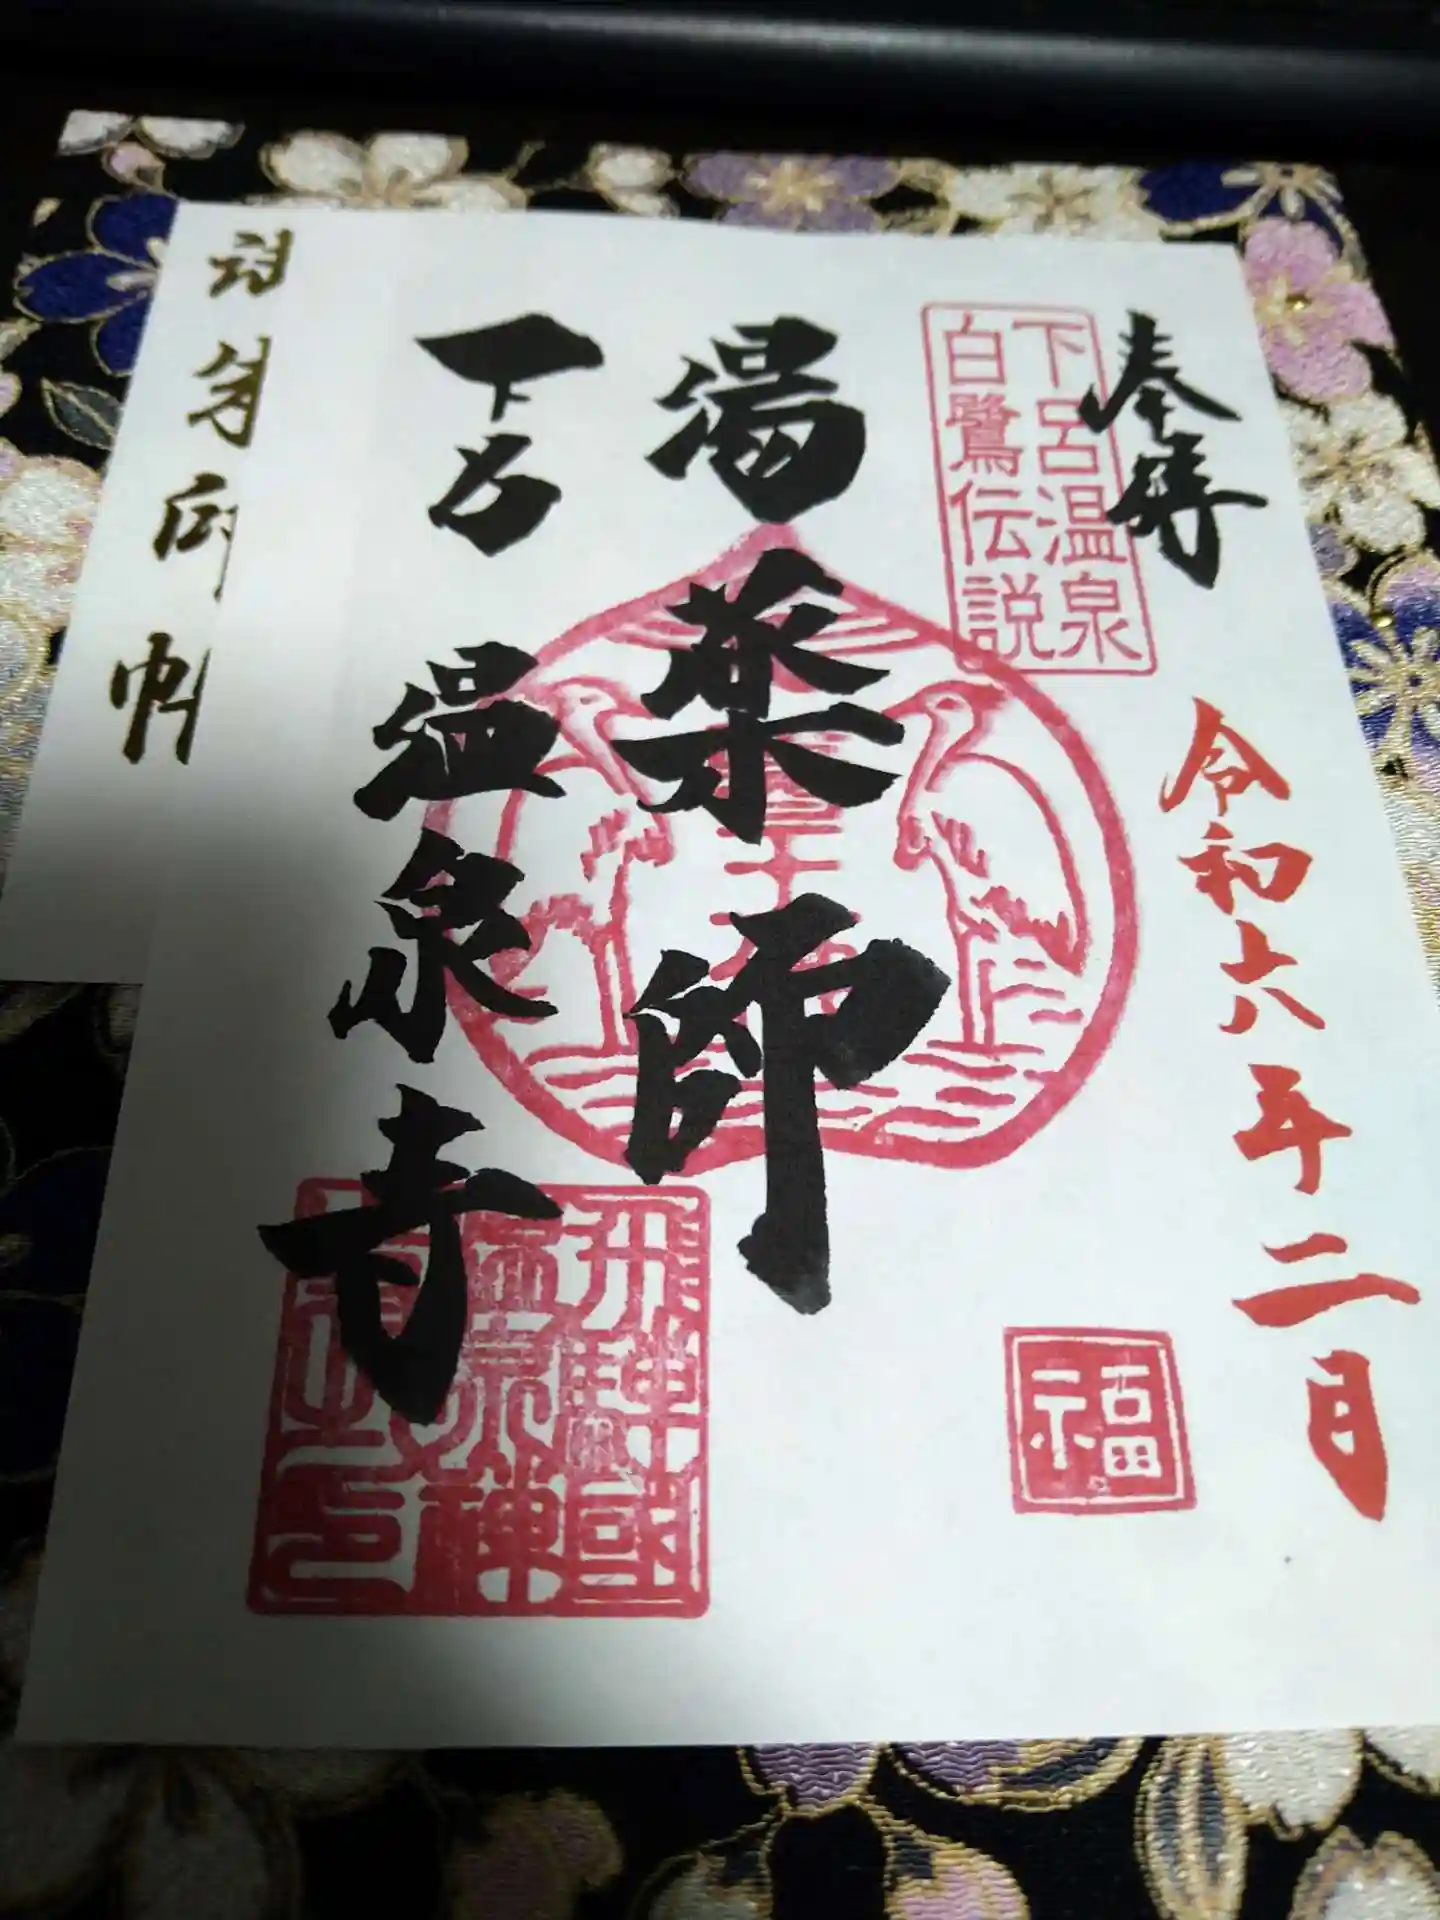 奉拝
令和六年二月
下呂温泉
白鷺伝説
福
湯薬師
下呂温泉寺
飛騨國
温泉禅
寺之印
朱印帖